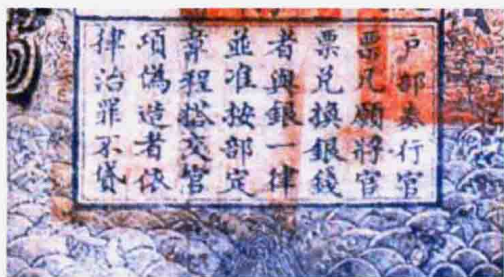 户部奏行官
票凡願將官
票兑換銀錢
者與銀一律
並准按部定
章程搭交官
項偽造者依
律治罪不貸